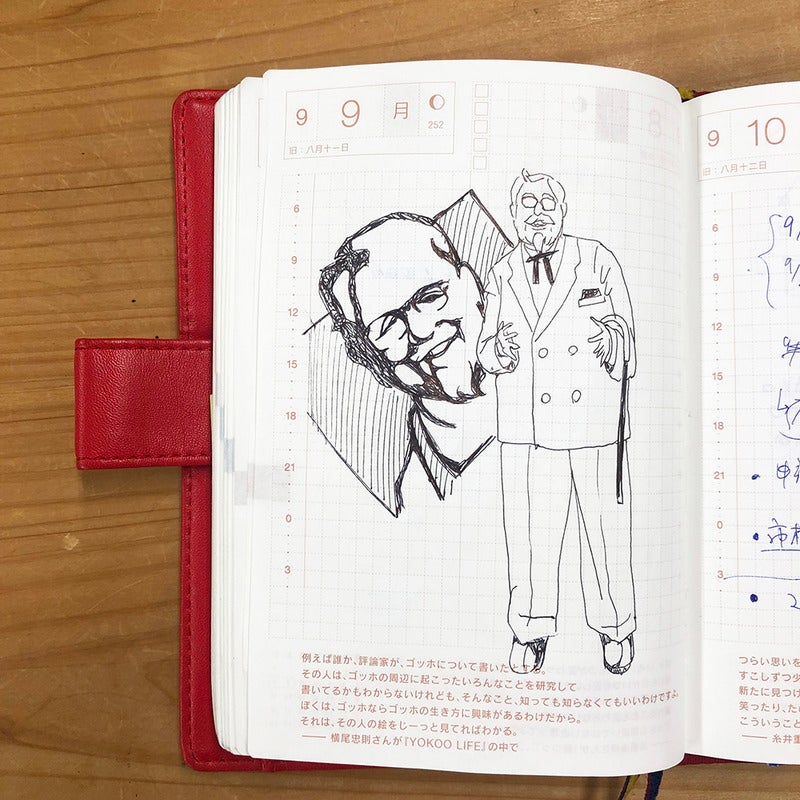 9 9 月
252
旧：八月十一日
6
9
12
15
18
21
0
3
例えば誰か、評論家が、ゴッホについて書いたとする。
その人は、ゴッホの周辺に起こったいろんなことを研究して
書いてるかもわからないけれども、そんなこと、知っても知らなくてもいいわけですよ。
ぼくは、ゴッホならゴッホの生き方に興味があるわけだから。
それは、その人の絵をじーっと見てればわかる。
―― 横尾忠則さんが『YOKOO LIFE』の中で
9 10
旧：八月十二日
6
9
12
15
18
21
0
3
つらい思いを
すこしずつ少
新たに見つけ
笑ったり、た
こういうこと
―― 糸井重